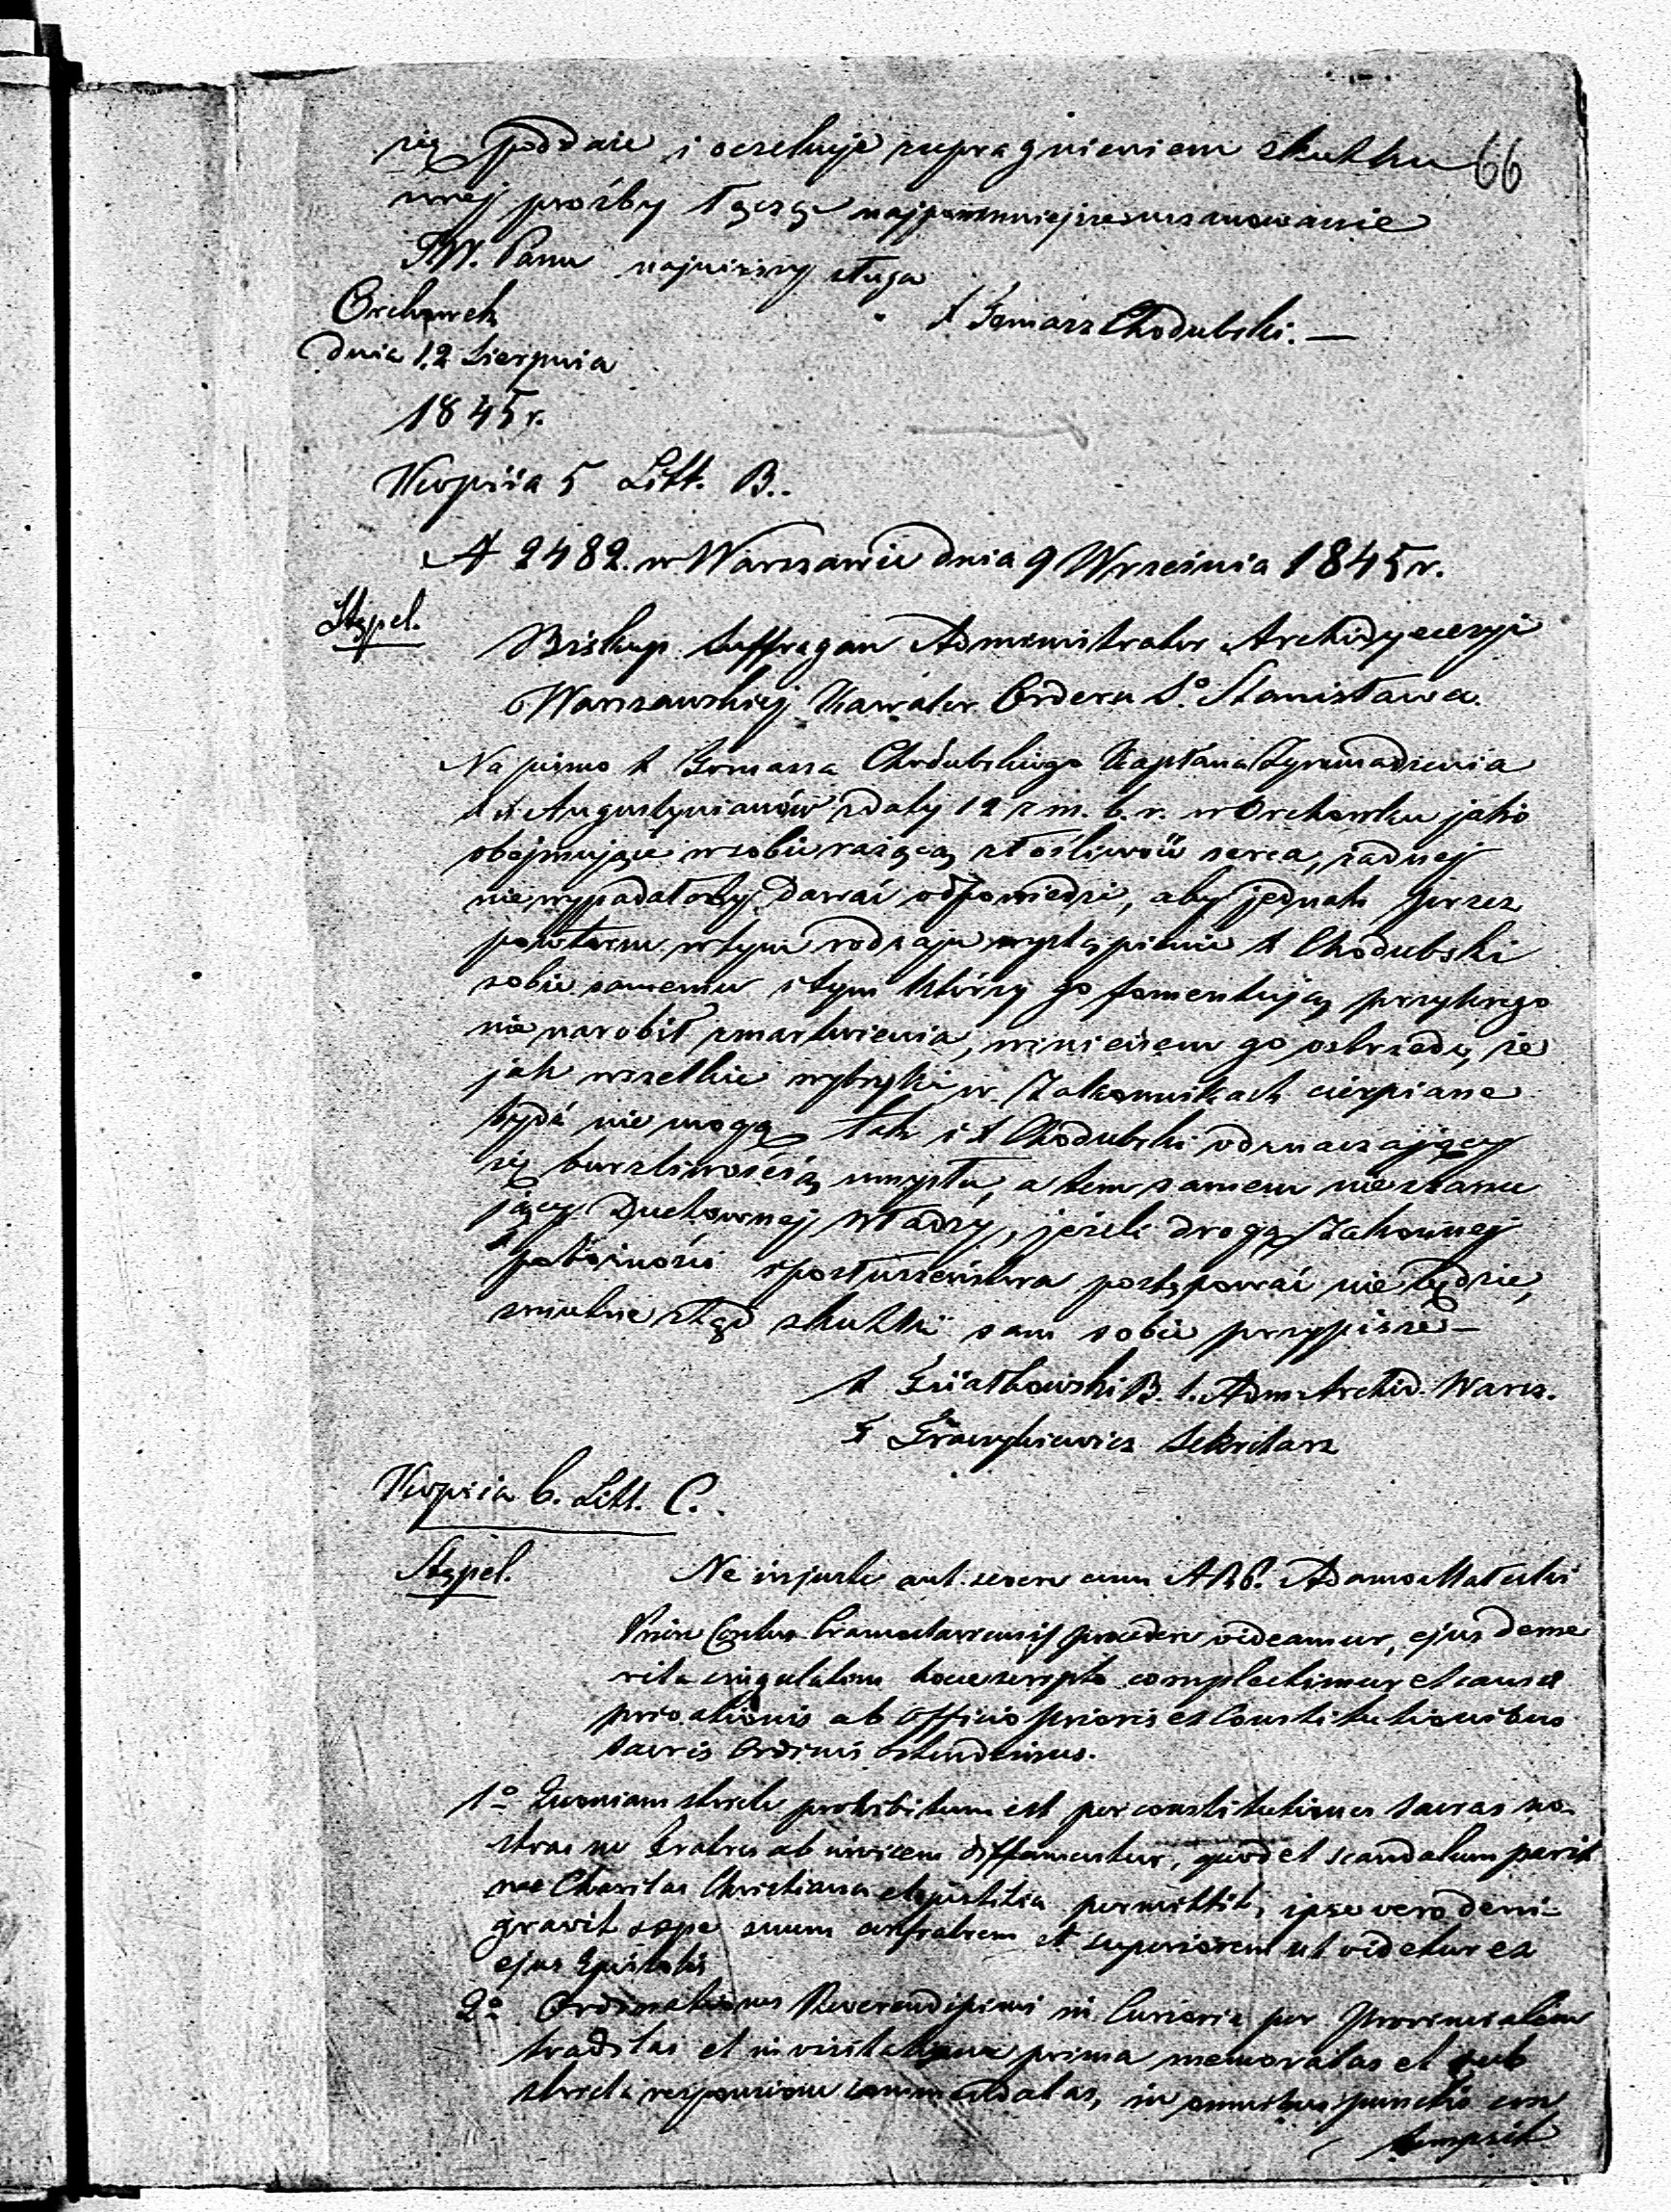 się poddaie i oczekuje zupragnieniem skutku 66
mej prośby łączę najpowinniejsze uszanowanie
JW. Panu najniższy sługa
Orchowek X Tomasz Chodubski. —
dnia 12 Sierpnia
1845 r.
Kopiia 5 Litt. B.
N 2482. w Warszawie dnia 9 Września 1845 r.
Stępel.
Biskup Suffragan Administrator Archidyecezyi
Warszawskiej Kawaler Orderu Sº Stanisława.
Na pismo X Tomasza Chodubskiego Kapłana Zgromadzenia
XX Augustynianów z daty 12 z m. b. r. w Orchowku jako
obejmujące w sobie rażącą złośliwość serca, żadnej
niewypadałoby dawać odpowiedzi, aby jednak przez
powtórne w tym rodzaju wystąpienie X Chodubski
sobie samemu i tym którzy go fomentują przykrego
nie narobił zmartwienia, winienem go ostrzedz, że
jak wszelkie wybryki w Zakonnikach cierpiane
bydź nie mogą tak i X Chodubski odznaczający
się burzliwością umysłu, a tem samem nieszanu
jący Duchownej Władzy, jeżeli drogą Zakonnej
potulności i posłuszeństwa postępować nie będzie,
smutne ztąd skutki sam sobie przypisze —
X Fijałkowski B. S. Adm. Archid. Warsz.
Sekretarz
Kopiia 6. Litt. C.
Stępel. Ne injuste aut severe cum ARP. Adamo Matulski
Priore Ctus Cramostaviensis procedere videamur, ejus deme
rita singulatim hocce scripto complectimur et causas
privationis ab officio prioris ex Constitutionibus
sacris Ordinis ostendimus.
1º Quoniam stricte prohibitum est per constitutiones sacras no
stras ne fratres ab invicem diffamentur, quod et scandalum parit
nec Charitas Christiana et justitia permittit, ipse vero deni-
gravit sæpe suum confratrem et superiorem ut videtur ex
ejus Epistolis
2º Ordinationes Reverendissimi in Curiaria per Provincialem
traditas et in visitatione prima memoratas et sub
stricta responsione commendatas, in omnibus punctis con
tempsit